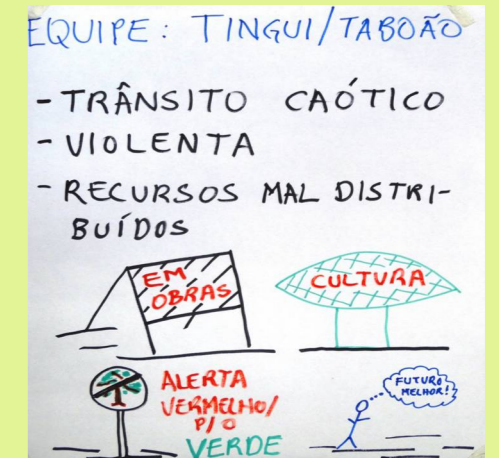 EQUIPE: TINGUI/TABOÃO
- TRÂNSITO CAÓTICO
- VIOLENTA
- RECURSOS MAL DISTRI-
BUÍDOS
EM
OBRAS
CULTURA
ALERTA
VERMELHO/
P/ O
VERDE
FUTURO
MELHOR!